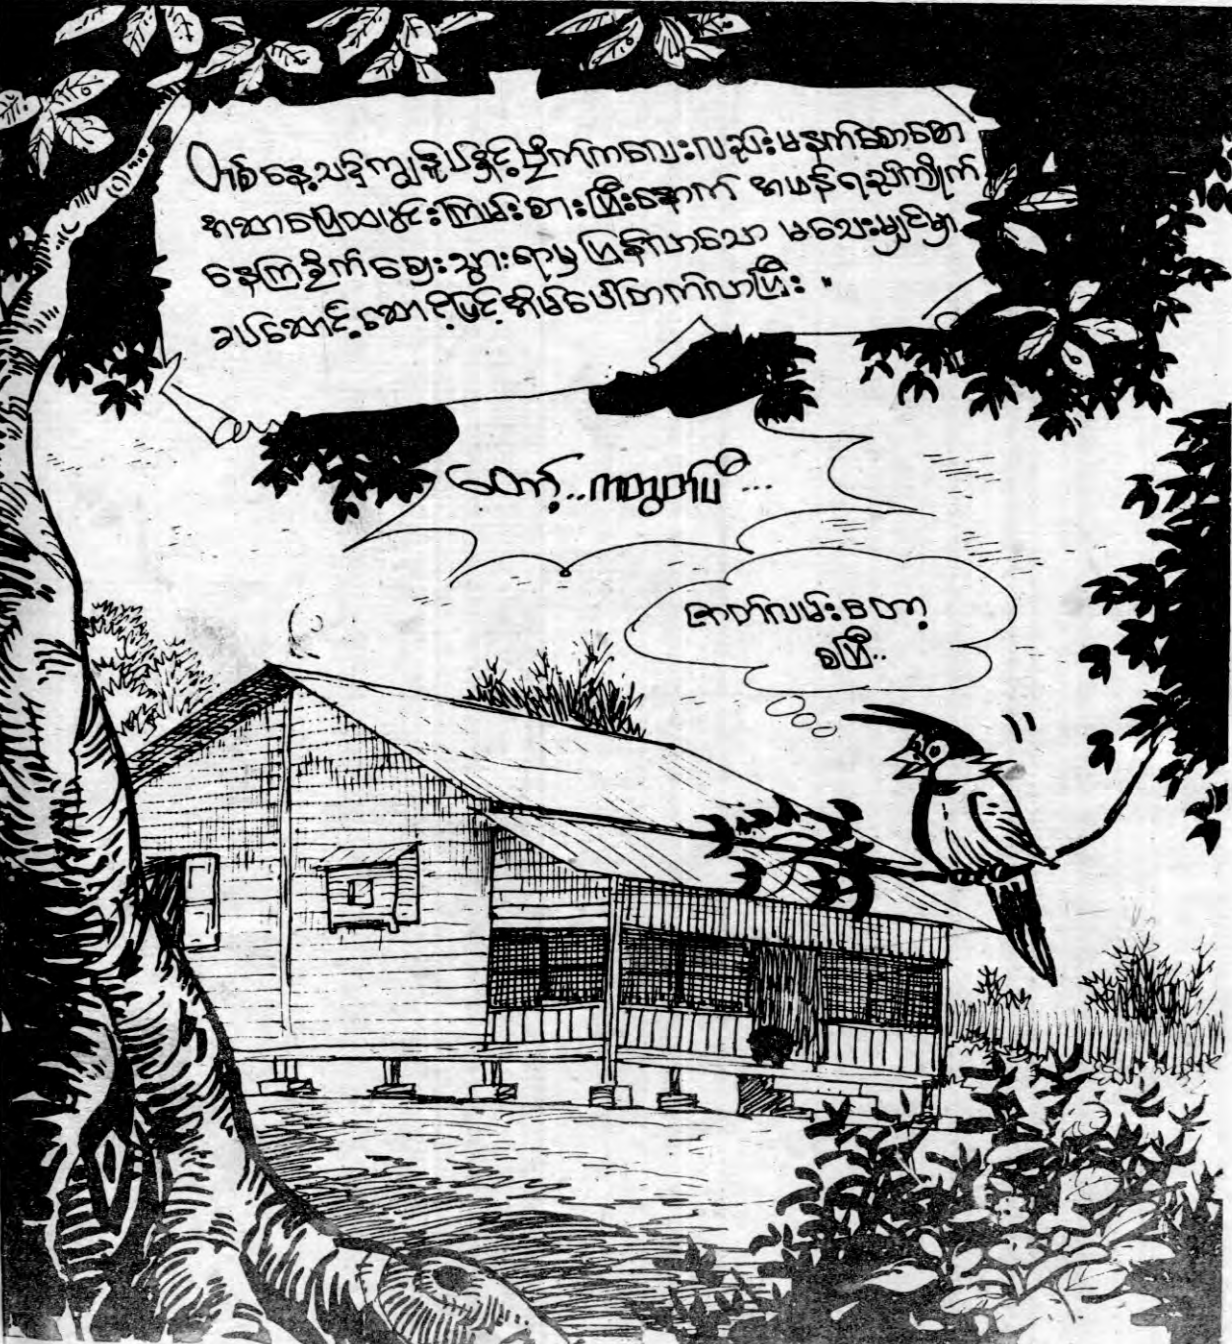 တစ်နေ့သ၌ကျွန်ုပ်နှင့်မိုက်ကလေးလည်းမနက်စောစော
အဆာပြေထမင်းကြမ်းစားပြီးနောက် အမန်ရည်ကြိုက်
နေကြစိုက်ဈေးသွားရာမှပြန်လာသော မသေးမျှင်မှာ
ခပ်ဆောင့်ဆောင့်ဖြင့်အိမ်ပေါ်တက်လာပြီး "
တောက်..ကတွတ်ပီ...
ဇာတ်လမ်းတော့
စပြီ..